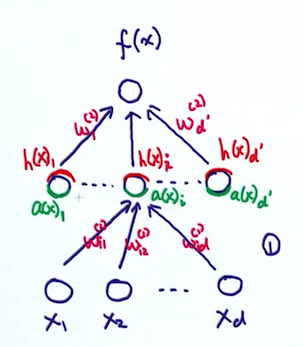 f(x)
w₁⁽²⁾ w_d'⁽²⁾
h(x)₁ h(x)ᵢ h(x)d'
a(x)₁ a(x)ᵢ a(x)d'
wᵢ₁⁽¹⁾ wᵢ₂⁽¹⁾ wᵢd⁽¹⁾
①
x₁ x₂ ... x_d